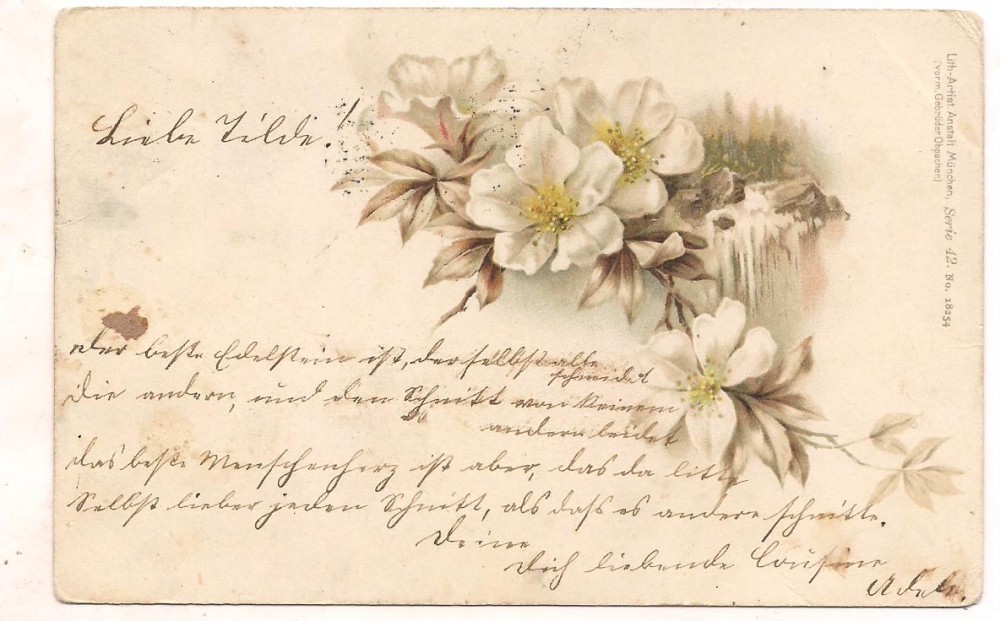 Liebe Tilde!
Der beste Edelstein ist, der selbst alle
schneidet
die andern, und den Schnitt von keinem
andern leidet
das beste Menschenherz ist aber, das da litte
Selbst lieber jeden Schnitt, als dass es andere schnitte.
Deine
Dich liebende Cousine
Adele.
Lith-Artist. Anstalt München, Serie 42. No. 18254
(vorm. Gebrüder Obpacher)